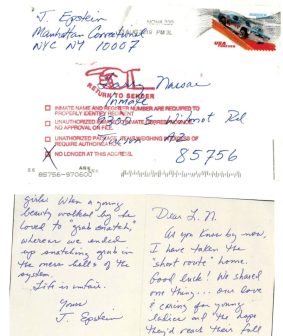 J. Epstein
Manhattan Correctional
NYC NY 10007
NOVA 220
PM 3L
USA
Larry Nassar
Inmate
9300 S. Wilmot Rd
Tucson AZ
85756
RETURN TO SENDER
INMATE NAME AND REGISTER NUMBER ARE REQUIRED TO
PROPERLY IDENTIFY RECIPIENT
UNAUTHORIZED
NO APPROVAL ON FILE.
UNAUTHORIZED PACKAGE ITEMS WEIGHING
REQUIRE AUTHORIZATION
X NO LONGER AT THIS ADDRESS
85756-970600
girls. When a young
beauty walked by he
loved to "grab snatch,"
whereas we ended
up snatching grub in
the mess halls of the
system.
Life is unfair.
Yours
J. Epstein
Dear L.N.
As you know by now,
I have taken the
"short route" home.
Good luck! We shared
one thing... our love
& caring for young
ladies and the hope
they'd reach their full